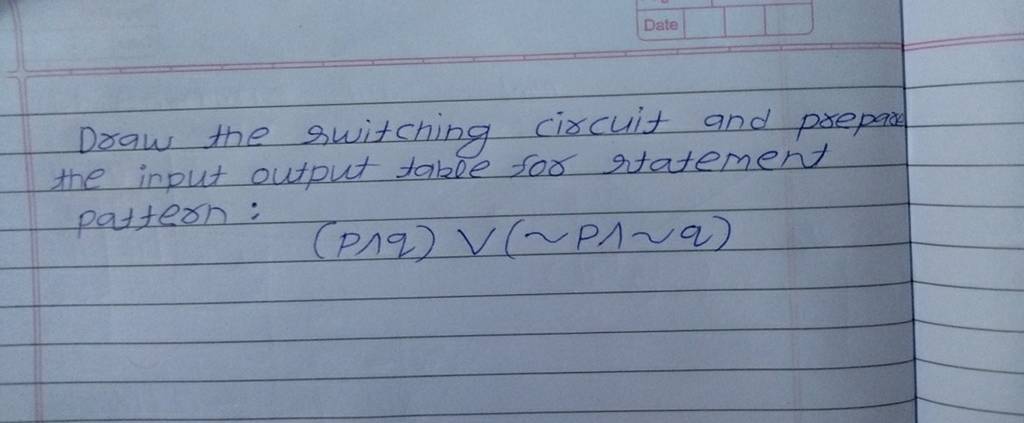 Date
Draw the switching circuit and prepare
the input output table for statement
pattern :
(p∧q) ∨ (~p∧~q)